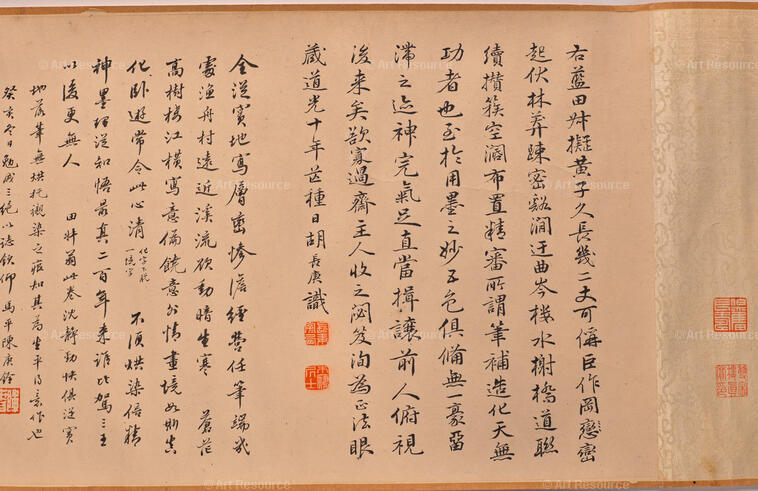 右藍田叔擬黃子久長幾二丈可偁巨作岡巒
起伏林莽疎密谿澗迂曲岑樓水榭橋道聯
續攢簇空濶布置精審所謂筆補造化天無
功者也至於用墨之妙五色俱備無一豪留
滯之迹神完氣足直當揖讓前人俯視
後来矣欲寡過齋主人收之宓笈洵為正法眼
藏道光十年芒種日胡長庚識
全從實地寫層巒慘澹經營任筆端幾
處漁舟村遠近溪流欲動暗生寒 蒼茫
高樹樓江橫寫意偏饒意外情畫境如斯真
化臥遊常令此心清 化字下脫
一境字 不須烘染倍精
神墨理從知悟最真二百年来誰比駕三王
以後更無人 田叔翁此卷沈靜勁快俱從實
地落筆無烘托襯染之痕知其為生平得意作也
癸亥冬日勉成三絕以誌欽仰馬平陳庚銓
© Art Resource
© Art Resource
© Art Resource
© Art Resource
© Art Resource